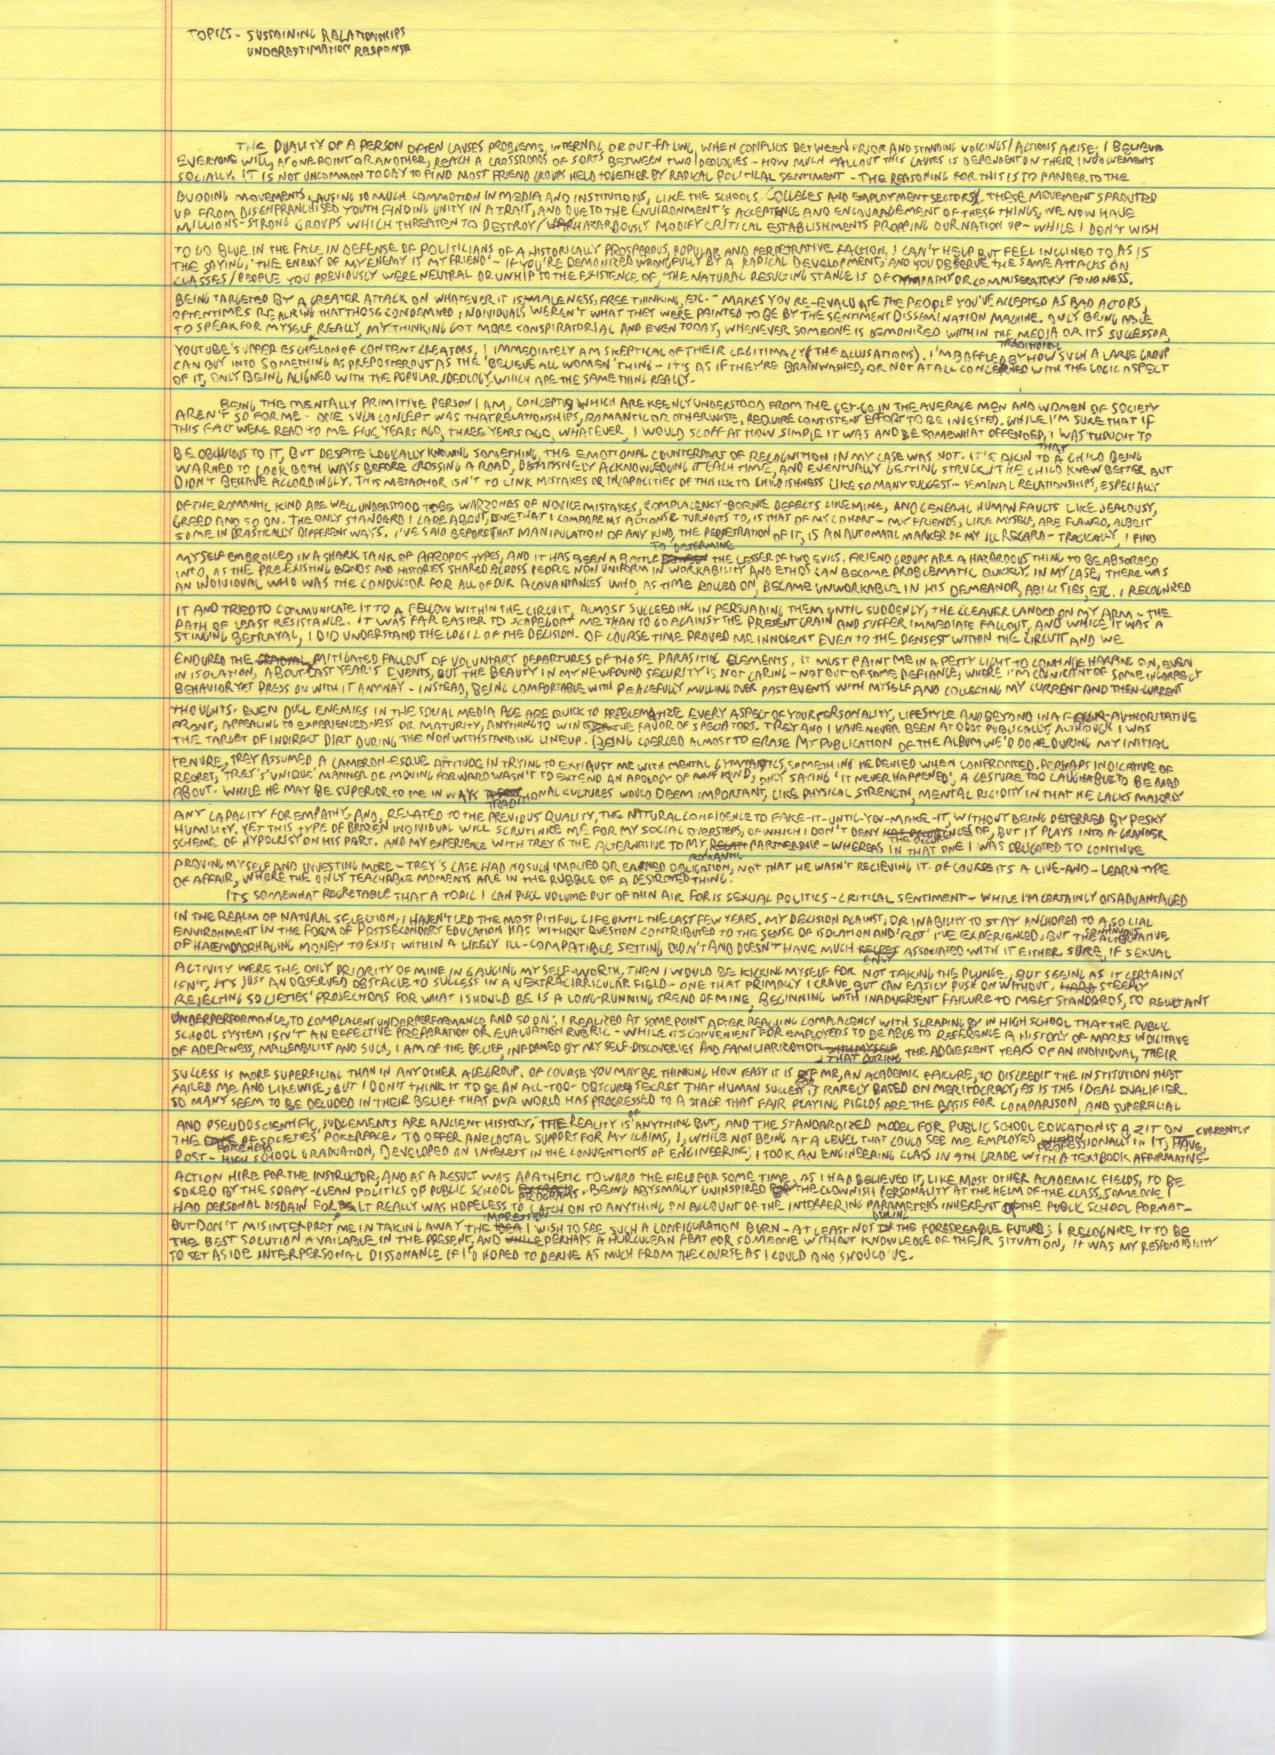 TOPICS - SUSTAINING RELATIONSHIPS
UNDERESTIMATION RESPONSE
THE DUALITY OF A PERSON OFTEN CAUSES PROBLEMS, INTERNAL OR OUT-FACING, WHEN CONFLICTS BETWEEN PRIOR AND STANDING VOICINGS/ACTIONS ARISE; I BELIEVE
EVERYONE WILL, AT ONE POINT OR ANOTHER, REACH A CROSSROADS OF SORTS BETWEEN TWO IDEOLOGIES - HOW MUCH FALLOUT THIS CAUSES IS DEPENDENT ON THEIR INVOLVEMENTS
SOCIALLY. IT IS NOT UNCOMMON TODAY TO FIND MOST FRIEND GROUPS HELD TOGETHER BY RADICAL POLITICAL SENTIMENT - THE REASONING FOR THIS IS TO PANDER TO THE
BUDDING MOVEMENTS CAUSING SO MUCH COMMOTION IN MEDIA AND INSTITUTIONS, LIKE THE SCHOOLS, COLLEGES AND EMPLOYMENT SECTORS. THESE MOVEMENT SPROUTED
UP FROM DISENFRANCHISED YOUTH FINDING UNITY IN A TRAIT, AND DUE TO THE ENVIRONMENT'S ACCEPTENCE AND ENCOURAGEMENT OF THESE THINGS, WE NOW HAVE
MILLIONS-STRONG GROUPS WHICH THREATEN TO DESTROY/HAZARDOUSLY MODIFY CRITICAL ESTABLISHMENTS PROPPING OUR NATION UP - WHILE I DON'T WISH
TO GO BLUE IN THE FACE IN DEFENSE OF POLITICIANS OF A HISTORICALLY PROSPEROUS, POPULAR AND PERPETRATIVE FACTION, I CAN'T HELP BUT FEEL INCLINED TO, AS IS
THE SAYING, 'THE ENEMY OF MY ENEMY IS MY FRIEND' - IF YOU'RE DEMONIZED WRONGFULLY BY A RADICAL DEVELOPMENT, AND YOU OBSERVE THE SAME ATTACKS ON
CLASSES/PEOPLE YOU PREVIOUSLY WERE NEUTRAL OR UNHIP TO THE EXISTENCE OF, THE NATURAL RESULTING STANCE IS OF EMPATHY OR COMMISERATORY FONDNESS.
BEING TARGETED BY A GREATER ATTACK ON WHATEVER IT IS - MALENESS, FREE THINKING, ETC. - MAKES YOU RE-EVALUATE THE PEOPLE YOU'VE ACCEPTED AS BAD ACTORS,
OFTENTIMES REALIZING THAT THOSE CONDEMNED INDIVIDUALS WEREN'T WHAT THEY WERE PAINTED TO BE BY THE SENTIMENT DISSEMINATION MACHINE. ONLY BEING ABLE
TO SPEAK FOR MYSELF REALLY, MY THINKING GOT MORE CONSPIRATORIAL AND EVEN TODAY, WHENEVER SOMEONE IS DEMONIZED WITHIN THE TRADITIONAL MEDIA OR ITS SUCCESSOR,
YOUTUBE'S UPPER ESCHELON OF CONTENT CREATORS, I IMMEDIATELY AM SKEPTICAL OF THEIR LEGITIMACY (THE ACCUSATIONS). I'M BAFFLED BY HOW SUCH A LARGE GROUP
CAN BUY INTO SOMETHING AS PREPOSTEROUS AS THE 'BELIEVE ALL WOMEN' THING - IT'S AS IF THEY'RE BRAINWASHED, OR NOT AT ALL CONCERNED WITH THE LOGIC ASPECT
OF IT, ONLY BEING ALIGNED WITH THE POPULAR IDEOLOGY, WHICH ARE THE SAME THING REALLY.
BEING THE MENTALLY PRIMITIVE PERSON I AM, CONCEPTS WHICH ARE KEENLY UNDERSTOOD FROM THE GET-GO IN THE AVERAGE MEN AND WOMEN OF SOCIETY
AREN'T SO FOR ME - ONE SUCH CONCEPT WAS THAT RELATIONSHIPS, ROMANTIC OR OTHERWISE, REQUIRE CONSISTENT EFFORT TO BE INVESTED. WHILE I'M SURE THAT IF
THIS FACT WERE READ TO ME FIVE YEARS AGO, THREE YEARS AGO, WHATEVER, I WOULD SCOFF AT HOW SIMPLE IT WAS AND BE SOMEWHAT OFFENDED, I WAS THOUGHT TO
BE OBLIVIOUS TO IT, BUT DESPITE LOGICALLY KNOWING SOMETHING, THE EMOTIONAL COUNTERPART OF RECOGNITION IN MY CASE WAS NOT. IT'S AKIN TO A CHILD BEING
WARNED TO LOOK BOTH WAYS BEFORE CROSSING A ROAD, DISMISSIVELY ACKNOWLEDGING IT EACH TIME, AND EVENTUALLY GETTING STRUCK, THAT THE CHILD KNEW BETTER BUT
DIDN'T BEHAVE ACCORDINGLY. THIS METAPHOR ISN'T TO LINK MISTAKES OR INCAPACITIES OF THIS ILK TO CHILDISHNESS LIKE SO MANY SUGGEST - SEMINAL RELATIONSHIPS, ESPECIALLY
OF THE ROMANTIC KIND ARE WELL UNDERSTOOD TO BE WARZONES OF NOVICE MISTAKES, COMPLACENCY-BORNE DEFECTS LIKE MINE, AND GENERAL HUMAN FAULTS LIKE JEALOUSY,
GREED AND SO ON. THE ONLY STANDARD I CARE ABOUT, ONE THAT I COMPARE MY ACTIONS & TURNOUTS TO, IS THAT OF MY COHORT - MY FRIENDS, LIKE MYSELF, ARE FLAWED, ALBEIT
SOME IN DRASTICALLY DIFFERENT WAYS. I'VE SAID BEFORE THAT MANIPULATION OF ANY KIND, THE PERPETRATION OF IT, IS AN AUTOMATIC MARKER OF MY ILL REGARD - TRAGICALLY I FIND
MYSELF EMBROILED IN A SHARK TANK OF APROPOS TYPES, AND IT HAS BEEN A BATTLE TO DETERMINE THE LESSER OF TWO EVILS. FRIEND GROUPS ARE A HAZARDOUS THING TO BE ABSORBED
INTO, AS THE PRE-EXISTING BONDS AND HISTORIES SHARED ACROSS PEOPLE NON UNIFORM IN WORKABILITY AND ETHOS CAN BECOME PROBLEMATIC QUICKLY. IN MY CASE, THERE WAS
AN INDIVIDUAL WHO WAS THE CONDUCTOR FOR ALL OF OUR ACQUAINTANCES WHO, AS TIME ROLLED ON, BECAME UNWORKABLE IN HIS DEMEANOR, ABILITIES, ETC. I RECOGNIZED
IT AND TRIED TO COMMUNICATE IT TO A FELLOW WITHIN THE CIRCUIT, ALMOST SUCCEEDING IN PERSUADING THEM UNTIL SUDDENLY, THE CLEAVER LANDED ON MY ARM - THE
PATH OF LEAST RESISTANCE. IT WAS FAR EASIER TO SCAPEGOAT ME THAN TO GO AGAINST THE PRESENT GRAIN AND SUFFER IMMEDIATE FALLOUT, AND WHILE IT WAS A
STINGING BETRAYAL, I DID UNDERSTAND THE LOGIC OF THE DECISION. OF COURSE TIME PROVED ME INNOCENT EVEN TO THE DENSEST WITHIN THE CIRCUIT AND WE
ENDURED THE MITIGATED FALLOUT OF VOLUNTARY DEPARTURES OF THOSE PARASITIC ELEMENTS. IT MUST PAINT ME IN A PETTY LIGHT TO CONTINUE HARPING ON, EVEN
IN ISOLATION, ABOUT LAST YEAR'S EVENTS, BUT THE BEAUTY IN MY NEWFOUND SECURITY IS NOT CARING - NOT OUT OF SOME DEFIANCE, WHERE I'M COGNIZANT OF SOME INCORRECT
BEHAVIOR YET PRESS ON WITH IT ANYWAY - INSTEAD, BEING COMFORTABLE WITH PEACEFULLY MULLING OVER PAST EVENTS WITH MYSELF AND COLLECTING MY CURRENT AND THEN-CURRENT
THOUGHTS. EVEN DULL ENEMIES IN THE SOCIAL MEDIA AGE ARE QUICK TO PROBLEMATIZE EVERY ASPECT OF YOUR PERSONALITY, LIFESTYLE AND BEYOND IN A FAUX-AUTHORITATIVE
FRONT, APPEALING TO EXPERIENCEDNESS OR MATURITY, ANYTHING TO WIN THE FAVOR OF SPECTATORS. TREY AND I HAVE NEVER BEEN AT ODDS PUBLICALLY, ALTHOUGH I WAS
THE TARGET OF INDIRECT DIRT DURING THE NON WITHSTANDING LINEUP. BEING COERCED ALMOST TO ERASE MY PUBLICATION OF THE ALBUM WE'D DONE DURING MY INITIAL
TENURE, TREY ASSUMED A CAMERON-ESQUE ATTITUDE IN TRYING TO EXHAUST ME WITH MENTAL GYMNASTICS, SOMETHING HE DENIED WHEN CONFRONTED. PERHAPS INDICATIVE OF
REGRET, TREY'S 'UNIQUE' MANNER OF MOVING FORWARD WASN'T TO EXTEND AN APOLOGY OF ANY KIND, ONLY SAYING 'IT NEVER HAPPENED', A GESTURE TOO LAUGHABLE TO BE MAD
ABOUT. WHILE HE MAY BE SUPERIOR TO ME IN WAYS TRADITIONAL CULTURES WOULD DEEM IMPORTANT, LIKE PHYSICAL STRENGTH, MENTAL RIGIDITY IN THAT HE LACKS MAJORLY
ANY CAPACITY FOR EMPATHY, AND, RELATED TO THE PREVIOUS QUALITY, THE NATURAL CONFIDENCE TO FAKE-IT-UNTIL-YOU-MAKE-IT, WITHOUT BEING DETERRED BY PESKY
HUMILITY, YET THIS TYPE OF BRAZEN INDIVIDUAL WILL SCRUTINIZE ME FOR MY SOCIAL OVERSTEPS, OF WHICH I DON'T DENY THE OCCURENCES OF, BUT IT PLAYS INTO A GRANDER
SCHEME OF HYPOCRISY ON HIS PART. AND MY EXPERIENCE WITH TREY IS THE ALTERNATIVE TO MY ROMANTIC PARTNERSHIP - WHEREAS IN THAT ONE I WAS OBLIGATED TO CONTINUE
PROVING MYSELF AND INVESTING MORE - TREY'S CASE HAD NO SUCH IMPLIED OR EARNED OBLIGATION, NOT THAT HE WASN'T RECIEVING IT. OF COURSE ITS A LIVE-AND-LEARN TYPE
OF AFFAIR, WHERE THE ONLY TEACHABLE MOMENTS ARE IN THE RUBBLE OF A DESTROYED THING.
IT'S SOMEWHAT REGRETABLE THAT A TOPIC I CAN PULL VOLUME OUT OF THIN AIR FOR IS SEXUAL POLITICS-CRITICAL SENTIMENT - WHILE I'M CERTAINLY DISADVANTAGED
IN THE REALM OF NATURAL SELECTION, I HAVEN'T LED THE MOST PITIFUL LIFE UNTIL THE LAST FEW YEARS. MY DECISION AGAINST, OR INABILITY TO STAY ANCHORED TO A SOCIAL
ENVIRONMENT IN THE FORM OF POSTSECONDARY EDUCATION HAS WITHOUT QUESTION CONTRIBUTED TO THE SENSE OF ISOLATION AND 'ROT' I'VE EXPERIENCED, BUT THE ALTERNATIVE
OF HAEMORRHAGING MONEY TO EXIST WITHIN A LIKELY ILL-COMPATIBLE SETTING DIDN'T AND DOESN'T HAVE MUCH ENVY ASSOCIATED WITH IT EITHER. SURE, IF SEXUAL
ACTIVITY WERE THE ONLY PRIORITY OF MINE IN GAUGING MY SELF-WORTH, THEN I WOULD BE KICKING MYSELF FOR NOT TAKING THE PLUNGE, BUT SEEING AS IT CERTAINLY
ISN'T, IT'S JUST AN OBSERVED OBSTACLE TO SUCCESS IN AN EXTRACIRRICULAR FIELD - ONE THAT PRIMALLY I CRAVE, BUT CAN EASILY PUSH ON WITHOUT. STEEPLY
REJECTING SOCIETIES' PROJECTIONS FOR WHAT I SHOULD BE IS A LONG-RUNNING TREND OF MINE, BEGINNING WITH INADVERTENT FAILURE TO MEET STANDARDS, TO RELUCTANT
UNDERPERFORMANCE, TO COMPLACENT UNDERPERFORMANCE AND SO ON; I REALIZED AT SOME POINT AFTER REACHING COMPLACENCY WITH SCRAPING BY IN HIGH SCHOOL THAT THE PUBLIC
SCHOOL SYSTEM ISN'T AN EFFECTIVE PREPARATION OR EVALUATION RUBRIC - WHILE ITS CONVENIENT FOR EMPLOYERS TO BE ABLE TO REFERENCE A HISTORY OF MARKS INDICATIVE
OF ADEPTNESS, MALLEABILITY AND SUCH, I AM OF THE BELIEF, INFORMED BY MY SELF-DISCOVERIES AND FAMILIARIZATION, THAT DURING THE ADOLESCENT YEARS OF AN INDIVIDUAL, THEIR
SUCCESS IS MORE SUPERFICIAL THAN IN ANY OTHER AGE GROUP. OF COURSE YOU MAY BE THINKING HOW EASY IT IS FOR ME, AN ACADEMIC FAILURE, TO DISCREDIT THE INSTITUTION THAT
FAILED ME AND LIKEWISE, BUT I DON'T THINK IT TO BE AN ALL-TOO-OBSCURE SECRET THAT HUMAN SUCCESS IS RARELY BASED ON MERITOCRACY, AS IS THE IDEAL QUALIFIER.
SO MANY SEEM TO BE DELUDED IN THEIR BELIEF THAT OUR WORLD HAS PROGRESSED TO A STAGE THAT FAIR PLAYING FIELDS ARE THE BASIS FOR COMPARISON, AND SUPERFICIAL
AND PSEUDOSCIENTIFIC JUDGEMENTS ARE ANCIENT HISTORY; THE REALITY IS ANYTHING BUT, AND THE STANDARDIZED MODEL FOR PUBLIC SCHOOL EDUCATION IS A ZIT ON
THE FOREHEAD OF SOCIETIES' POKERFACE. TO OFFER ANECDOTAL SUPPORT FOR MY CLAIMS, I, WHILE NOT BEING AT A LEVEL THAT COULD SEE ME EMPLOYED PROFESSIONALLY IN IT, CURRENTLY HAVE,
POST-HIGH SCHOOL GRADUATION, DEVELOPED AN INTEREST IN THE CONVENTIONS OF ENGINEERING; I TOOK AN ENGINEERING CLASS IN 9TH GRADE WITH A TEXTBOOK AFFIRMATIVE-
ACTION HIRE FOR THE INSTRUCTOR, AND AS A RESULT WAS APATHETIC TOWARD THE FIELD FOR SOME TIME, AS I HAD BELIEVED IT, LIKE MOST OTHER ACADEMIC FIELDS, TO BE
SOILED BY THE SOAPY-CLEAN POLITICS OF PUBLIC SCHOOL PROGRAMS. BEING ABYSMALLY UNINSPIRED BY THE CLOWNISH PERSONALITY AT THE HELM OF THE CLASS, SOMEONE I
HAD PERSONAL DISDAIN FOR, IT REALLY WAS HOPELESS TO LATCH ON TO ANYTHING ON ACCOUNT OF THE INTERFERING PARAMETERS INHERENT OF THE PUBLIC SCHOOL FORMAT -
BUT DON'T MISINTERPRET ME IN TAKING AWAY THE IMPRESSION I WISH TO SEE SUCH A CONFIGURATION BURN - AT LEAST NOT DURING THE FORESEEABLE FUTURE; I RECOGNIZE IT TO BE
THE BEST SOLUTION AVAILABLE IN THE PRESENT, AND PERHAPS A HURCULEAN FEAT FOR SOMEONE WITHOUT KNOWLEDGE OF THEIR SITUATION, IT WAS MY RESPONSIBILITY
TO SET ASIDE INTERPERSONAL DISSONANCE IF I'D HOPED TO DERIVE AS MUCH FROM THE COURSE AS I COULD AND SHOULD'VE.